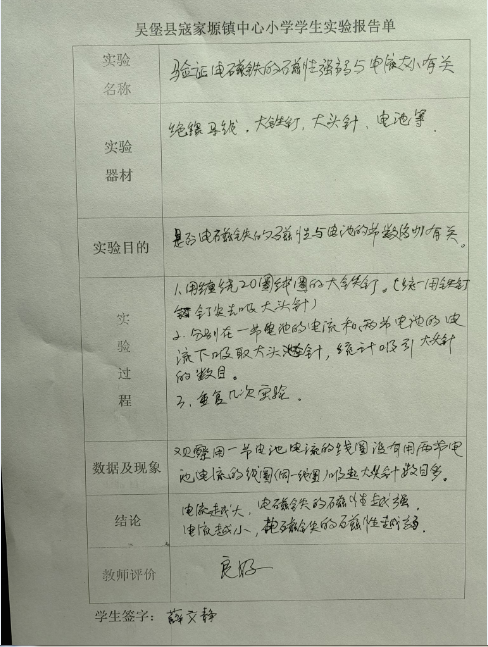 吴堡县寇家塬镇中心小学学生实验报告单
实验名称
验证电磁铁的磁性强弱与电流大小有关
实验器材
绝缘导线、大铁钉、大头针、电池等.
实验目的
是否电磁铁的磁性与电池的节数多少有关。
实验过程
1.用缠绕20圈线圈的大铁钉。(统一用铁钉
钉尖去吸大头针)
2.分别在一节电池的电流和两节电池的电
流下吸取大头针,统计吸引大头针
的数目。
3.重复几次实验.
数据及现象
观察用一节电池电流的线圈没有用两节电
池电流的线圈(同一线圈)吸起大头针数目多。
结论
电流越大,电磁铁的磁性越强.
电流越小,电磁铁的磁性越弱.
教师评价
良好
学生签字:薛文静